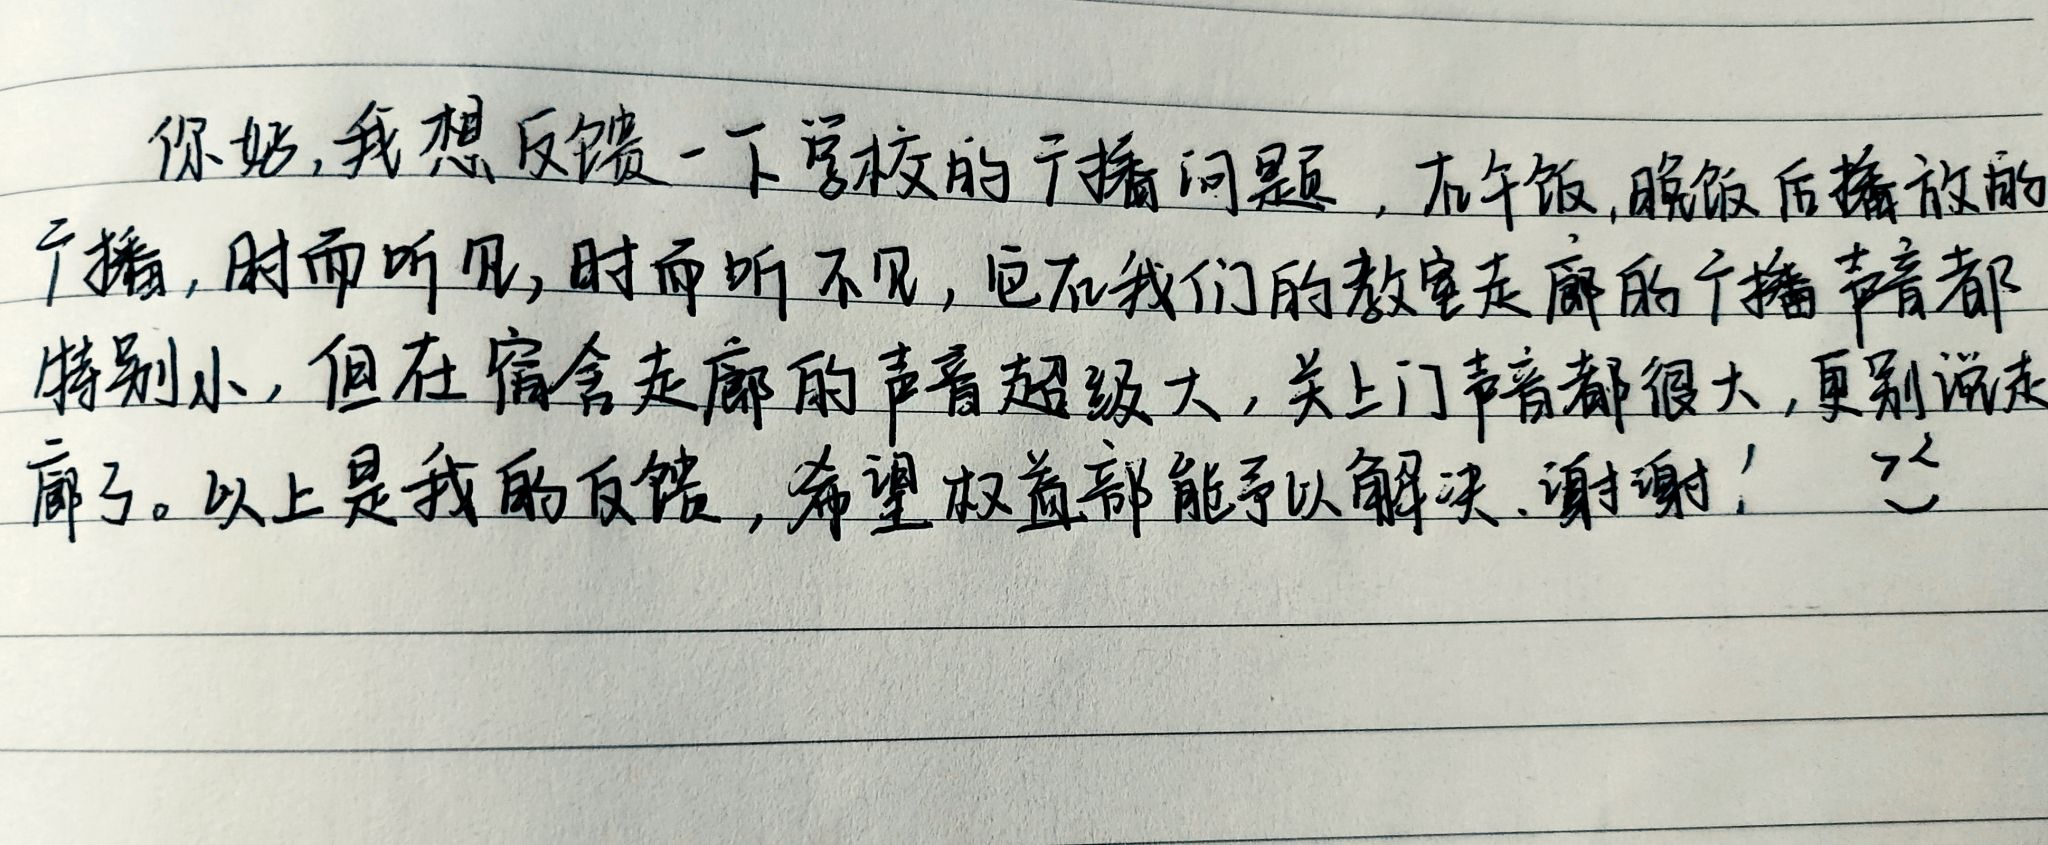 你好,我想反馈一下学校的广播问题,在午饭,晚饭后播放的
广播,时而听见,时而听不见,它在我们的教室走廊的广播声音都
特别小,但在宿舍走廊的声音超级大,关上门声音都很大,更别说走
廊了。以上是我的反馈,希望权益部能予以解决.谢谢!